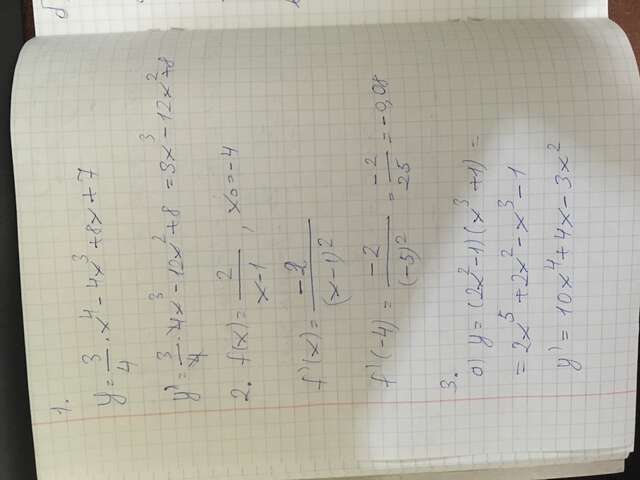 1.
y = 3/4 · x⁴ - 4x³ + 8x + 7
y' = 3/4 · 4x³ - 12x² + 8 = 3x³ - 12x² + 8
2. f(x) = 2/(x-1) , x₀ = -4
f'(x) = -2/(x-1)²
f'(-4) = -2/(-5)² = -2/25 = -0,08
3.
а) y = (2x²-1)(x³+1) =
= 2x⁵ + 2x² - x³ - 1
y' = 10x⁴ + 4x - 3x²
б